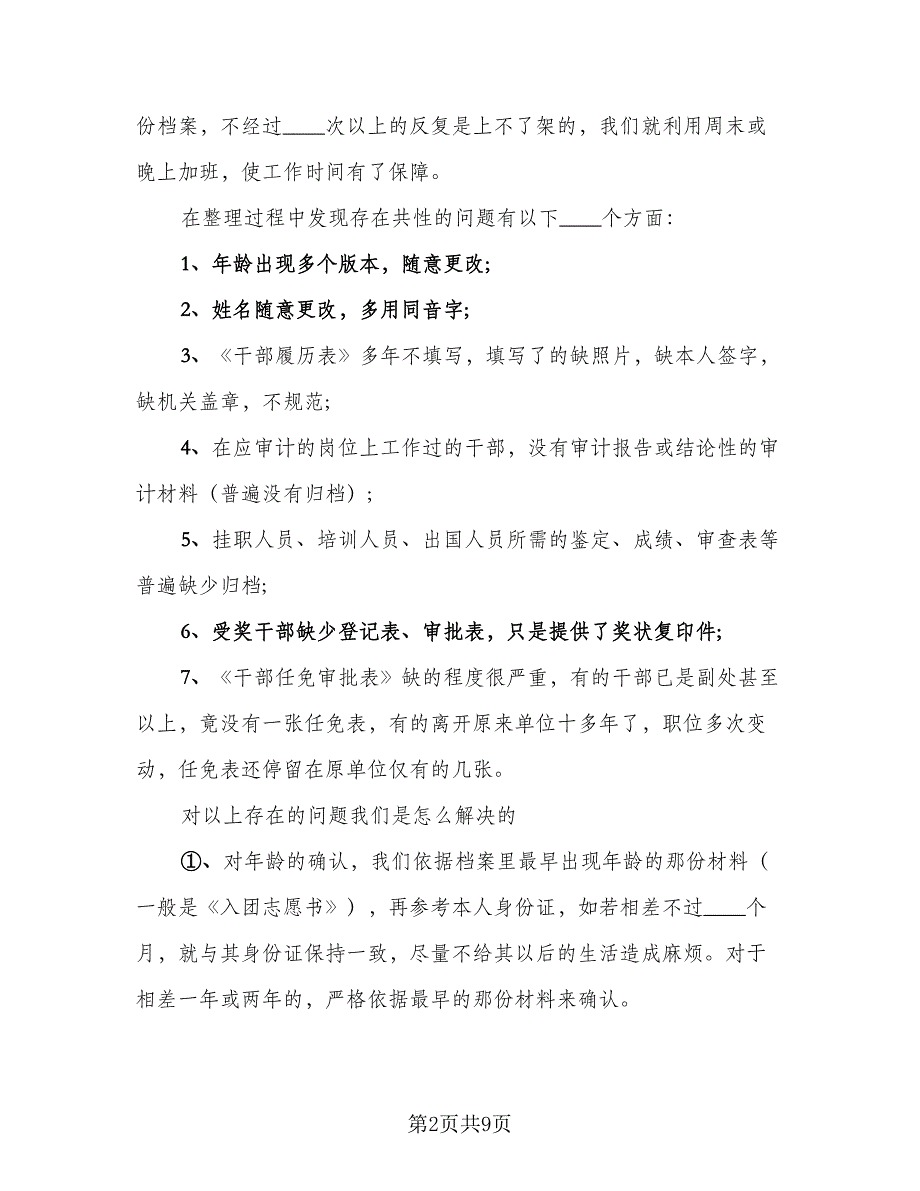 份档案，不经过____次以上的反复是上不了架的，我们就利用周末或
晚上加班，使工作时间有了保障。
在整理过程中发现存在共性的问题有以下____个方面：
1、年龄出现多个版本，随意更改;
2、姓名随意更改，多用同音字;
3、《干部履历表》多年不填写，填写了的缺照片，缺本人签字，
缺机关盖章，不规范;
4、在应审计的岗位上工作过的干部，没有审计报告或结论性的审
计材料（普遍没有归档）;
5、挂职人员、培训人员、出国人员所需的鉴定、成绩、审查表等
普遍缺少归档;
6、受奖干部缺少登记表、审批表，只是提供了奖状复印件;
7、《干部任免审批表》缺的程度很严重，有的干部已是副处甚至
以上，竟没有一张任免表，有的离开原来单位十多年了，职位多次变
动，任免表还停留在原单位仅有的几张。
对以上存在的问题我们是怎么解决的
①、对年龄的确认，我们依据档案里最早出现年龄的那份材料（
一般是《入团志愿书》），再参考本人身份证，如若相差不过____个
月，就与其身份证保持一致，尽量不给其以后的生活造成麻烦。对于
相差一年或两年的，严格依据最早的那份材料来确认。
第2页共9页